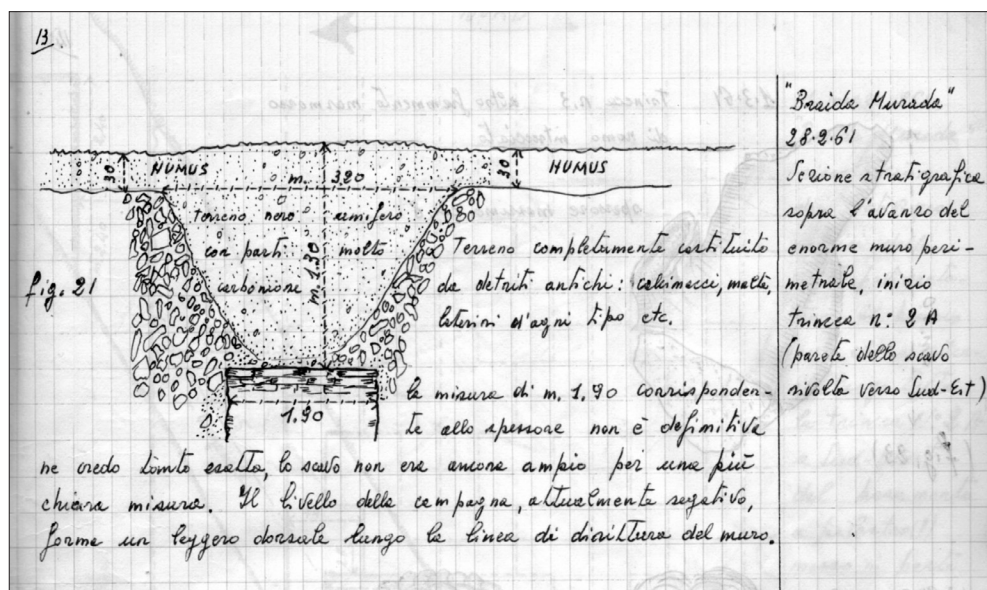 13
HUMUS
HUMUS
30
m. 3,20
30
terreno nero umifero
con parti molto
carboniose
m. 1.30
fig. 21
1.90
Terreno completamente costituito
da detriti antichi: calcinacci, malta,
laterizi d'ogni tipo etc.
la misura di m. 1,90 corrisponden-
te allo spessore non è definitiva
ne credo tanto esatta, lo scavo non era ancora ampio per una più
chiara misura. Il livello della campagna, attualmente segativo,
forma un leggero dorsale lungo la linea di dirittura del muro.
"Braida Murada"
28.2.61
Sezione stratigrafica
sopra l'avanzo del
enorme muro peri-
metrale, inizio
trincea n: 2 A
(parete dello scavo
rivolta verso Sud-Est)